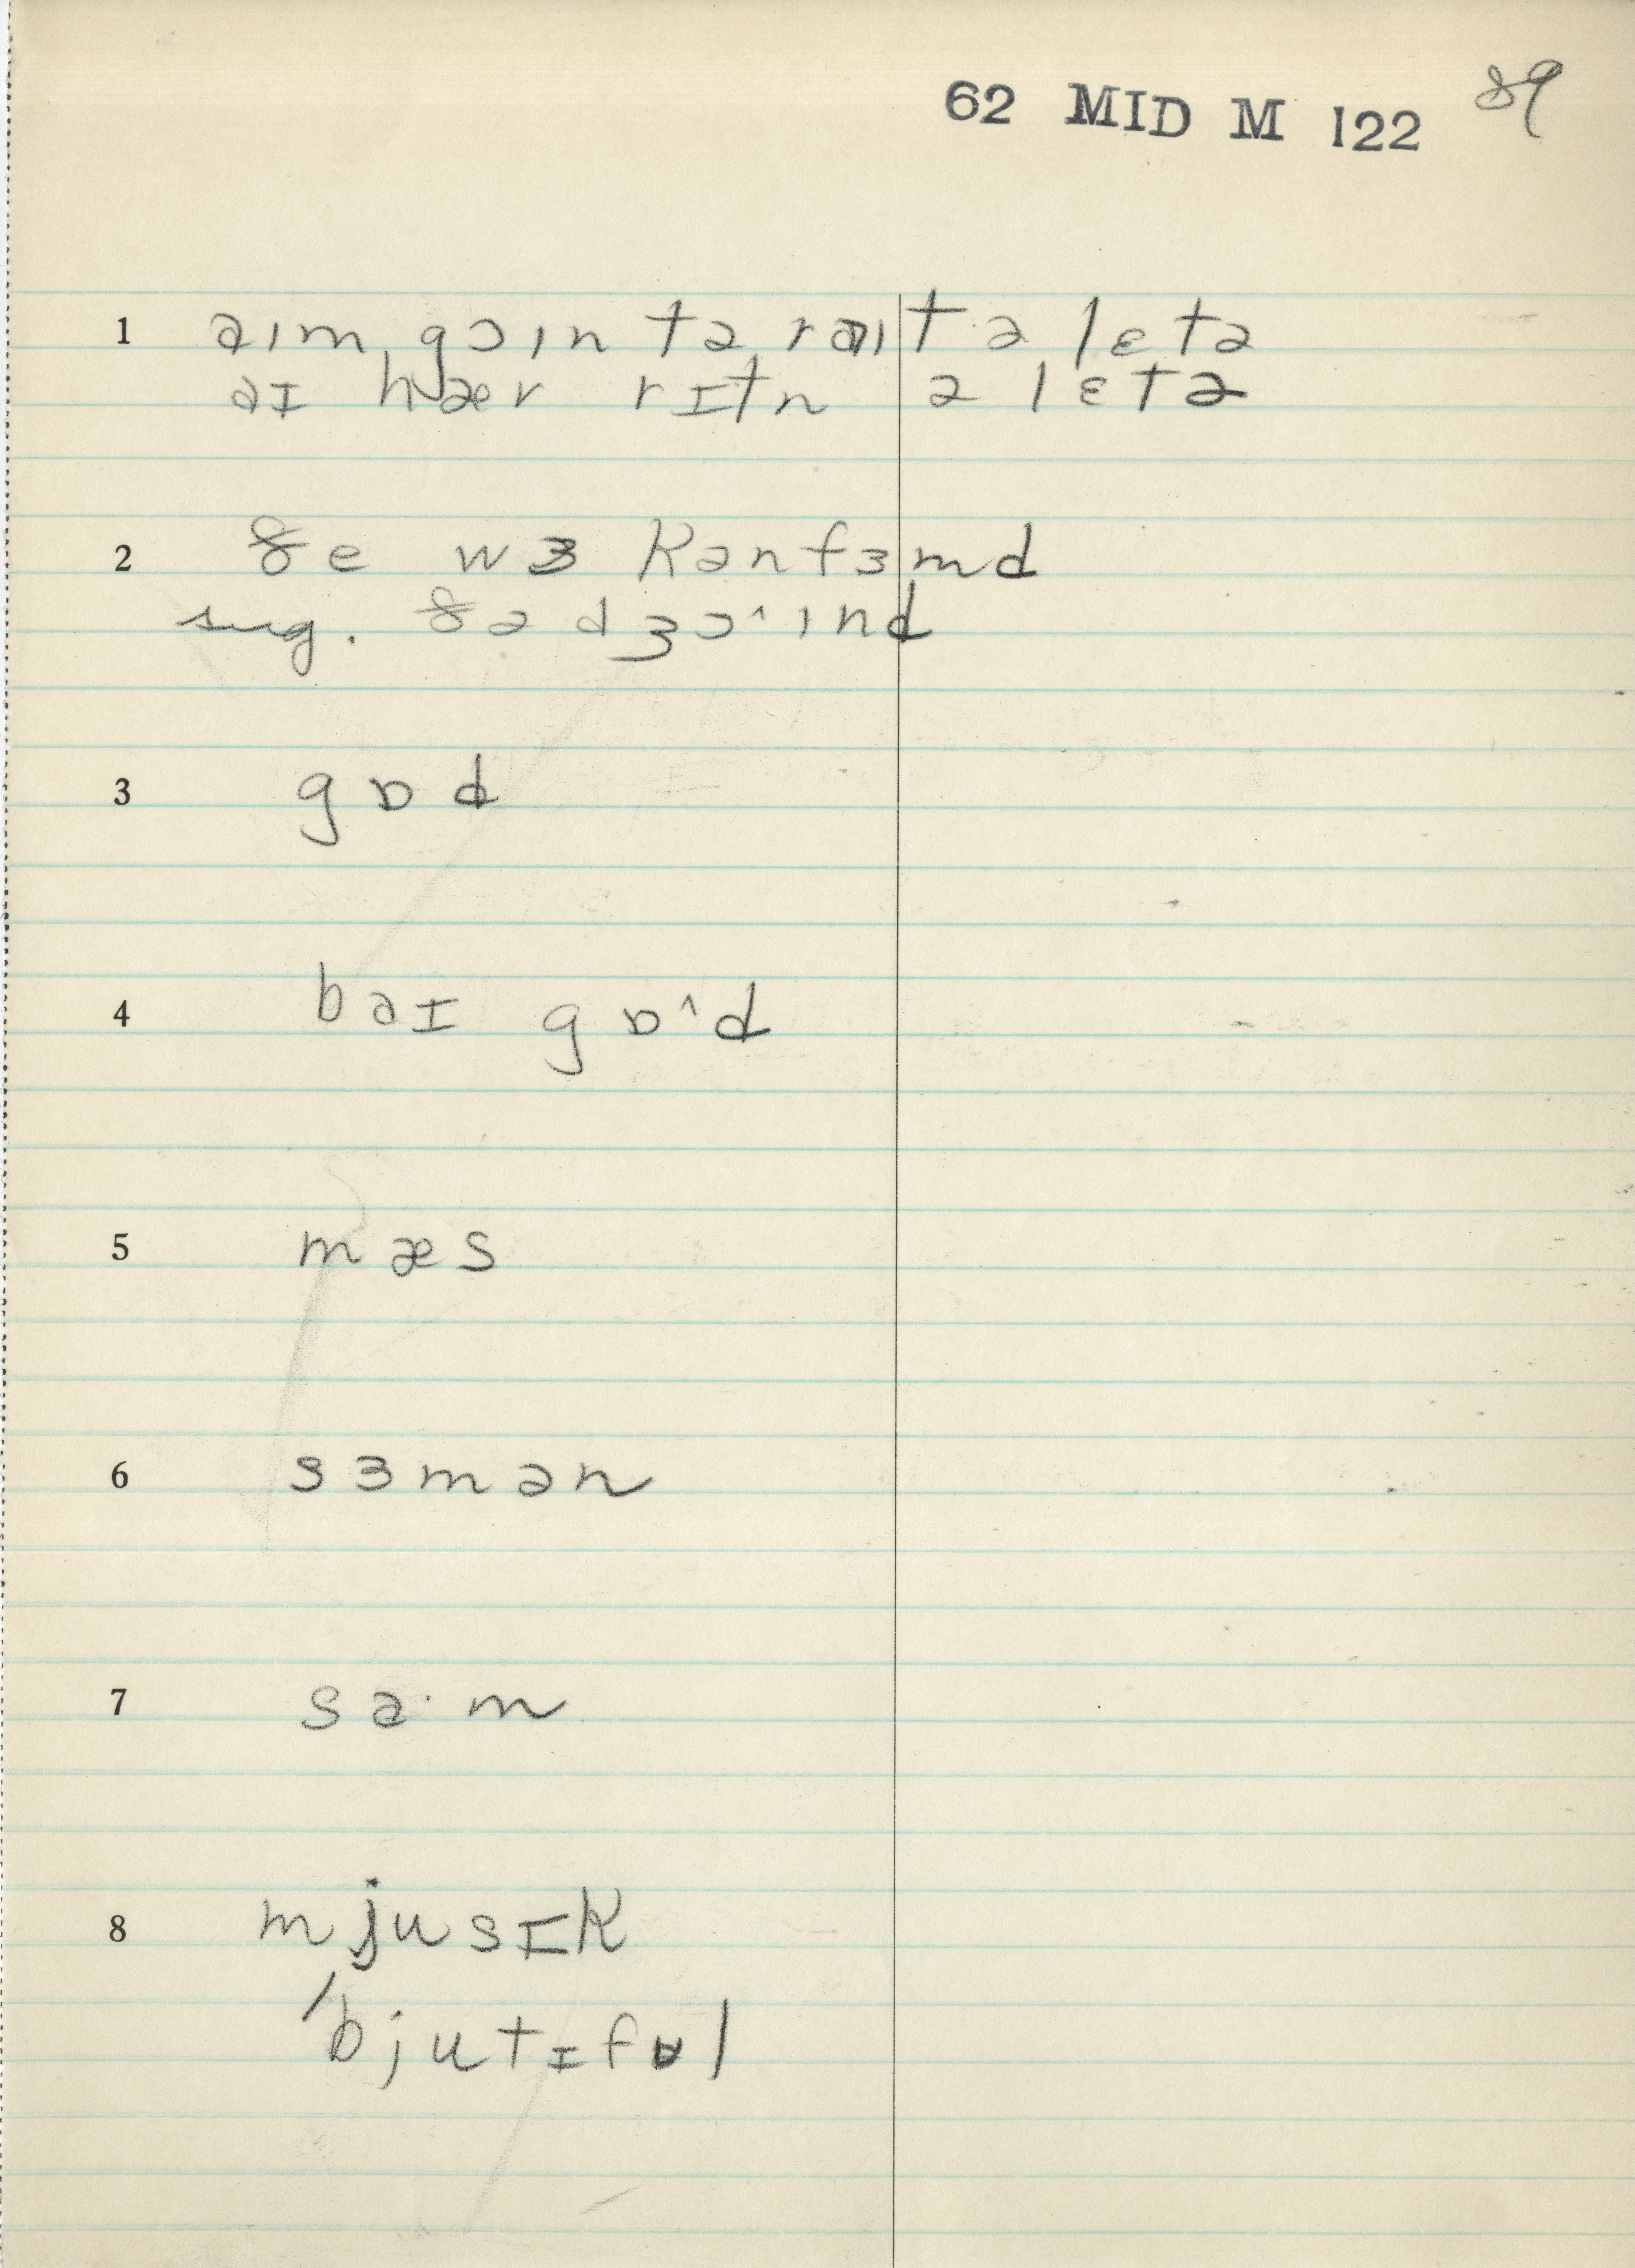 62 MID M 122 89
1 əɪm goɪn tə rəɪt ə lɛtə
əɪ hær rɪtn ə lɛtə
2 ðe wɜ kənfɜmd
sug. ðə dʒɔˆɪnd
3 gɒd
4 bəɪ gɒˆd
5 mæs
6 sɜmən
7 sɑ· m
8 mjusɪk
ˈbjutɪfʊl